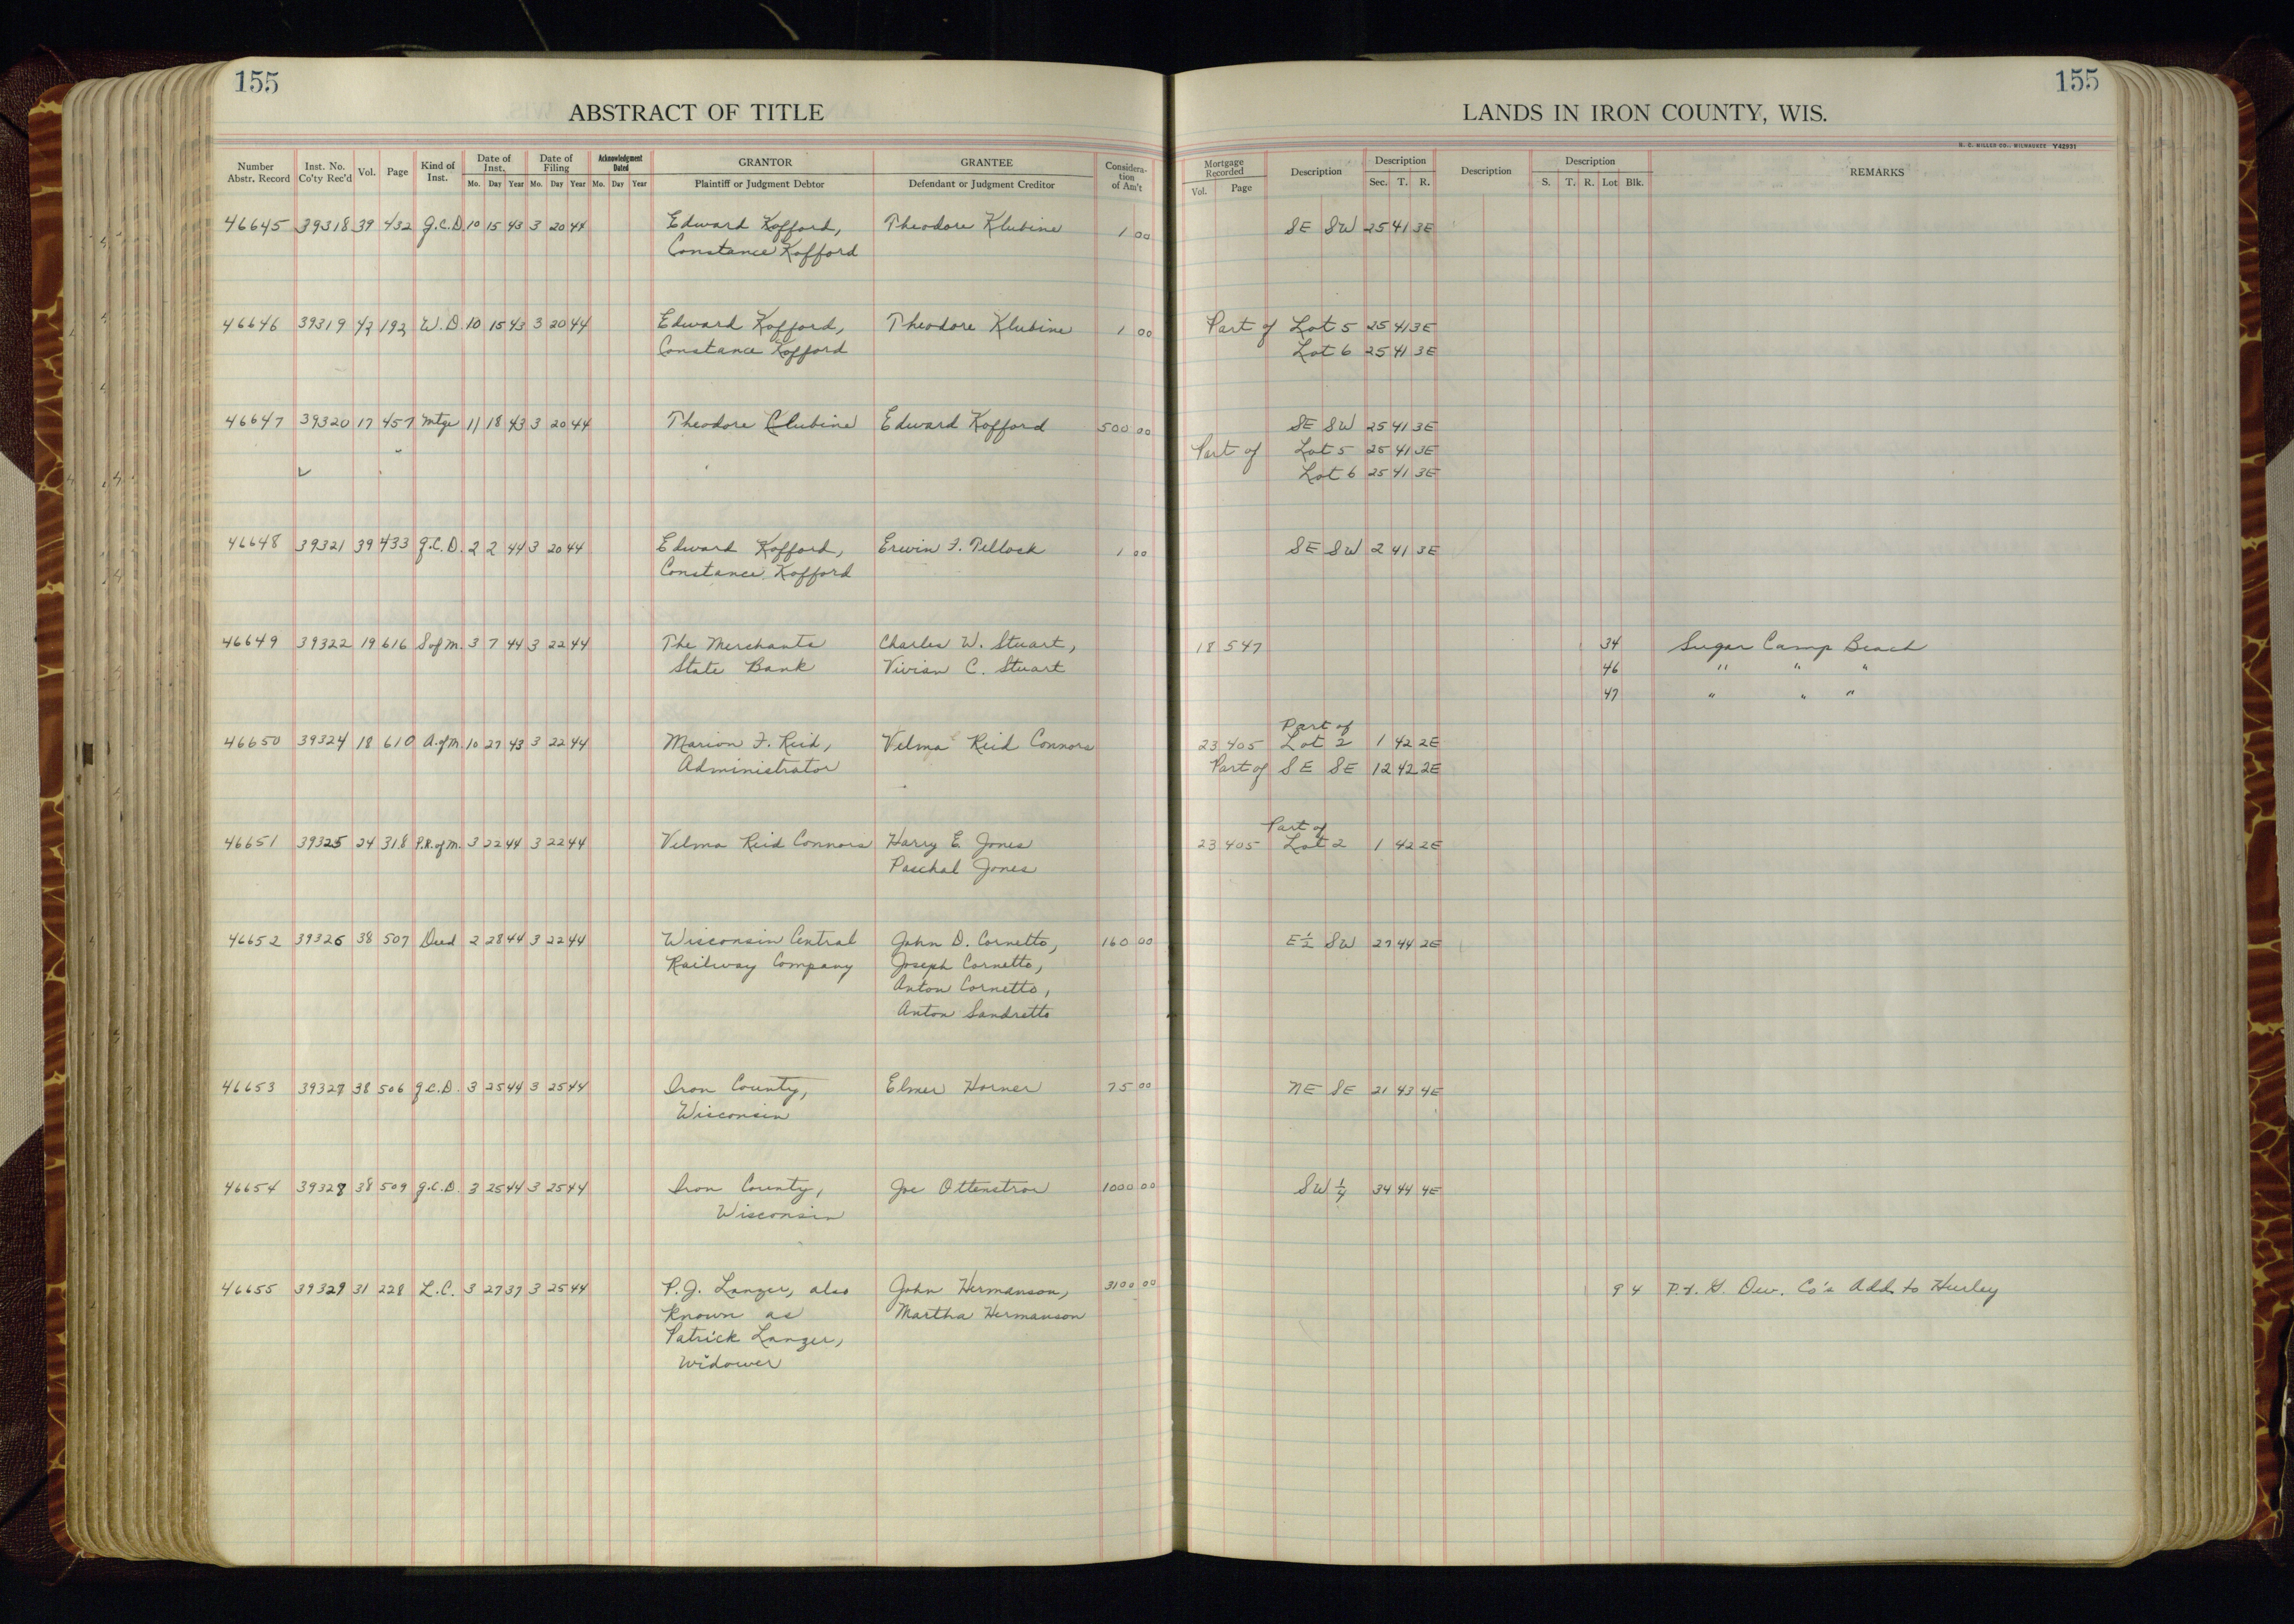 155
155
ABSTRACT OF TITLE
LANDS IN IRON COUNTY, WIS.
H. C. MILLER CO., MILWAUKEE Y42931
Number Abstr. Record Inst. No. Co'ty Rec'd Vol. Page Kind of Inst. Date of Inst. Mo. Day Year Date of Filing Mo. Day Year Acknowledgment Dated Mo. Day Year GRANTOR Plaintiff or Judgment Debtor GRANTEE Defendant or Judgment Creditor Considera-tion of Am't Mortgage Recorded Vol. Page Description Description Sec. T. R. Description Description S. T. R. Lot Blk. REMARKS
46645 39318 39 432 q.C.D. 10 15 43 3 20 44 Edward Kofford, Theodore Klubine 1 00 SE SW 25 41 3E
Constance Kofford
46646 39319 42 192 W.D. 10 15 43 3 20 44 Edward Kofford, Theodore Klubine 1 00 Part of Lot 5 25 41 3E
Constance Kofford Lot 6 25 41 3E
46647 39320 17 457 Mtge 11 18 43 3 20 44 Theodore Clubine Edward Kofford 500 00 SE SW 25 41 3E
Part of Lot 5 25 41 3E
Lot 6 25 41 3E
46648 39321 39 433 q.C.D. 2 2 44 3 20 44 Edward Kofford, Erwin F. Tellock 1 00 SE SW 2 41 3E
Constance Kofford
46649 39322 19 616 S of M. 3 7 44 3 22 44 The Merchants Charles W. Stuart, 18 547 34 Sugar Camp Beach
State Bank Vivian C. Stuart 46 " " "
47 " " "
Part of
46650 39324 18 610 A. of M. 10 27 43 3 22 44 Marion F. Reid, Velma Reid Connors 23 405 Lot 2 1 42 2E
Administrator Part of SE SE 12 42 2E
Part of
46651 39325 24 318 P.R. of M. 3 22 44 3 22 44 Velma Reid Connors Harry E. Jones 23 405 Lot 2 1 42 2E
Paschal Jones
46652 39326 38 507 Deed 2 28 44 3 22 44 Wisconsin Central John D. Cornetto, 160 00 E 1/2 SW 27 44 2E
Railway Company Joseph Cornetto,
Anton Cornetto,
Anton Sandretto
46653 39327 38 506 q.C.D. 3 25 44 3 25 44 Iron County, Elmer Horner 75 00 NE SE 21 43 4E
Wisconsin
46654 39328 38 509 q.C.D. 3 25 44 3 25 44 Iron County, Joe Ottenstror 1000 00 SW 1/4 34 44 4E
Wisconsin
46655 39329 31 228 L.C. 3 27 37 3 25 44 P.J. Lanzer, also John Hermanson, 3100 00 9 4 P. & H. Dev. Co's Add. to Hurley
known as Martha Hermanson
Patrick Lanzer,
widower